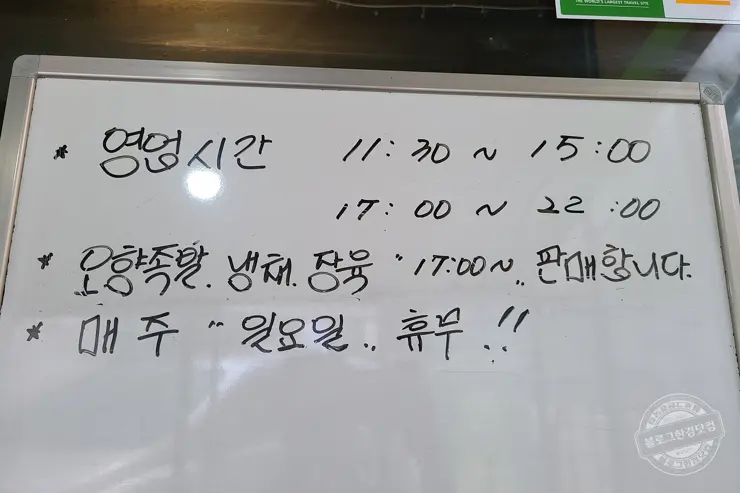 THE WORLD'S LARGEST TRAVEL SITE
* 영업시간 11:30 ~ 15:00
17:00 ~ 22:00
* 오향족발. 냉채. 장육 "17:00~" 판매합니다.
* 매주 "일요일" 휴무!!
블로그한경닷컴